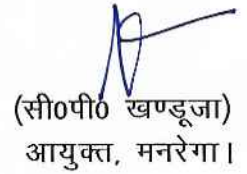 (सी0पी0 खण्डूजा)
आयुक्त, मनरेगा।